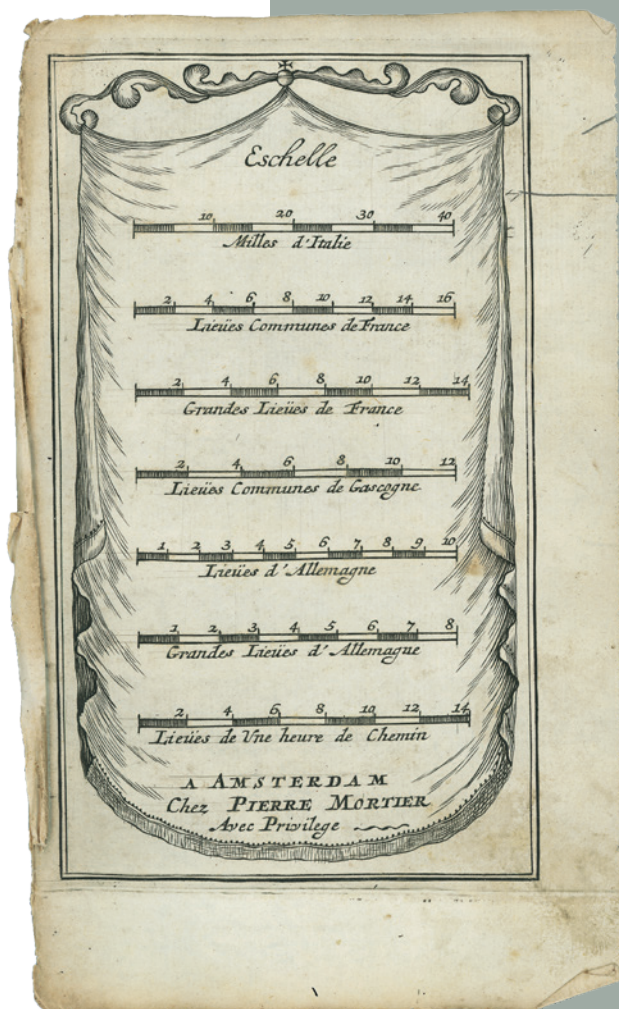 Eschelle
10 20 30 40
Milles d'Italie
2 4 6 8 10 12 14 16
Lieües Communes de France
2 4 6 8 10 12 14
Grandes Lieües de France
2 4 6 8 10 12
Lieües Communes de Gascogne
1 2 3 4 5 6 7 8 9 10
Lieües d'Allemagne
1 2 3 4 5 6 7 8
Grandes Lieües d'Allemagne
2 4 6 8 10 12 14
Lieües de Vne heure de Chemin
A AMSTERDAM
Chez PIERRE MORTIER
Avec Privilege